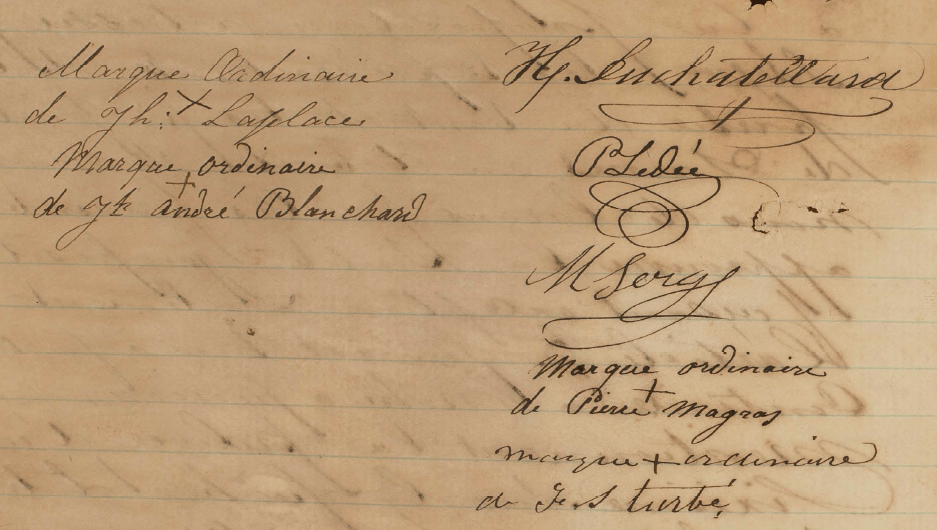 Marque Ordinaire
de Jh: + Laplace
Marque ordinaire
de Jh + andré Blanchard
H. Duchatellard
P Lédée
M Sorg
Marque ordinaire
de Pierre + Magras
marque + ordinaire
de J. S turbé